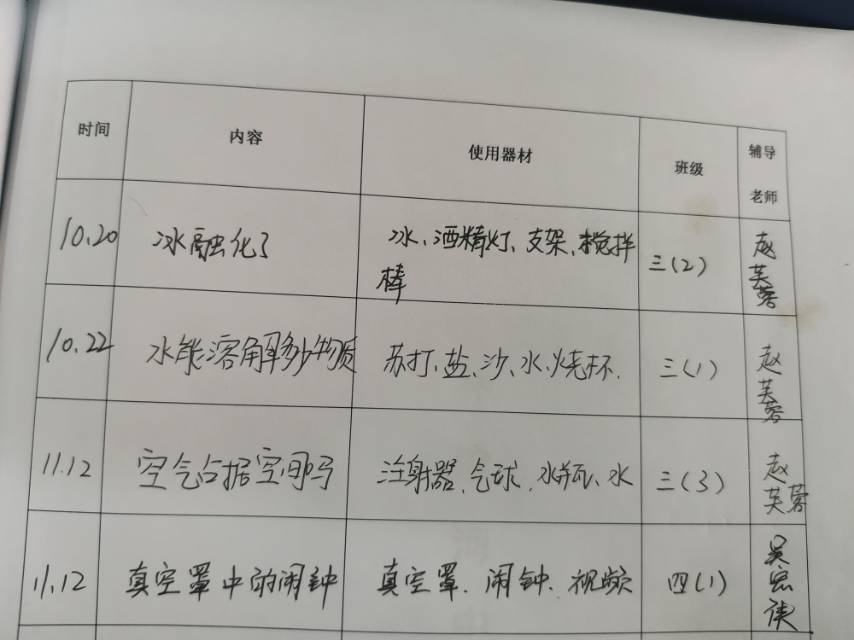 时间 内容 使用器材 班级 辅导老师
10.20 冰融化了 冰、酒精灯、支架、搅拌棒 三(2) 赵芙蓉
10.22 水能溶解多少物质 苏打、盐、沙、水、烧杯. 三(1) 赵芙蓉
11.12 空气占据空间吗 注射器、气球、水瓶、水 三(3) 赵芙蓉
11.12 真空罩中的闹钟 真空罩、闹钟、视频 四(1) 吴